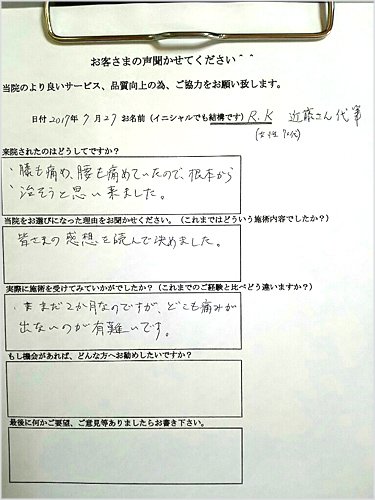 お客さまの声聞かせてください＾＾
当院のより良いサービス、品質向上の為、ご協力をお願い致します。
日付 2017年 7月 27 お名前（イニシャルでも結構です）R.K 近藤さん代筆
(女性 70代)
来院されたのはどうしてですか？
・膝も痛め、腰も痛めていたので、根本から
治そうと思い来ました。
当院をお選びになった理由をお聞かせください。（これまではどういう施術内容でしたか？）
皆さまの感想を読んで決めました。
実際に施術を受けてみていかがでしたか？（これまでのご経験と比べどう違いますか？）
・まだ2か月なのですが、どこも痛みが
出ないのが有難いです。
もし機会があれば、どんな方へお勧めしたいですか？
最後に何かご要望、ご意見等ありましたらお書き下さい。